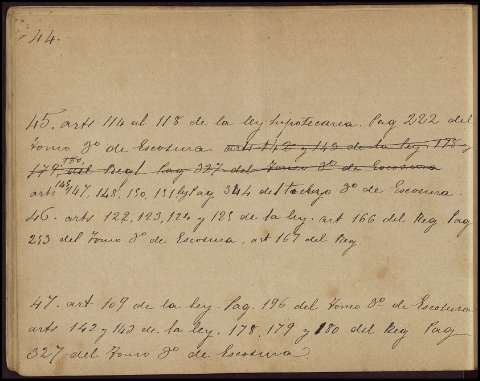 44.
45. arts 114 al 118 de la ley hipotecaria. Pag 222 del
tomo 3º de Escosura. arts 142 y 143 de la ley 178 y
179, 180, del Regl Pag 327 del Tomo 3º de Escosura
arts 145, 147, 148, 150, 151 y Pag 344 del 3º de Escosura.
46. arts 122, 123, 124 y 125 de la ley. art 166 del Reg Pag
253 del Tomo 3º de Escosura, art 167 del Reg
47. art 109 de la ley. Pag. 196 del Tomo 3º de Escosura
arts 142 y 143 de la ley. 178, 179 y 180 del Reg Pag
327 del Tomo 3º de Escosura